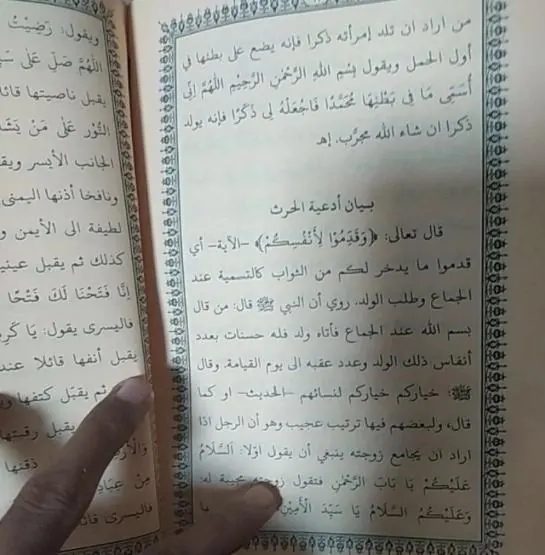 من اراد ان تلد إمرأته ذكرا فإنه يضع على بطنها في
أول الحمل ويقول بِسْمِ اللهِ الرَّحْمٰنِ الرَّحِيْمِ اللّٰهُمَّ اِنِّى
أُسَمِّى مَا فِى بَطْنِهَا مُحَمَّدًا فَاجْعَلْهُ لِى ذَكَرًا فإنه يولد
ذكرا ان شاء الله مجرَّب. إهـ
بيان أدعية الحرث
قال تعالى: ﴿وَقَدِّمُوْا لِأَنْفُسِكُمْ﴾ -الآية- أي
قدموا ما يدخر لكم من الثواب كالتسمية عند
الجماع وطلب الولد. روي أن النبي ﷺ قال: من قال
بسم الله عند الجماع فأتاه ولد فله حسنات بعدد
أنفاس ذلك الولد وعدد عقبه الى يوم القيامة. وقال
ﷺ: خياركم خياركم لنسائهم -الحديث- او كما
قال، ولبعضهم فيها ترتيب عجيب وهو أن الرجل اذا
اراد ان يجامع زوجته ينبغي أن يقول اوّلا: اَلسَّلَامُ
عَلَيْكُمْ يَا بَابَ الرَّحْمٰنِ فتقول زوجته مجيبة له:
وَعَلَيْكُمُ السَّلَامُ يَا سَيِّدَ الْأَمِيْنِ
ويقول: رَضِيْتُ
اللّٰهُمَّ صَلِّ عَلَى
يقبل ناصيتها قائلا
النُّوْر عَلَى مَنْ يَشَا
الجانب الأيسر ويق
ونافخا أذنها اليمنى
لطيفة الى الأيمن و
كذلك ثم يقبل عيني
إِنَّا فَتَحْنَا لَكَ فَتْحًا
فاليسرى يقول: يَا كَرِ
يقبل أنفها قائلا عند
ثم يقبل كتفها و
يقبل رقبتها
ذقنها
مِنْ عِبَادِ
فاليسرى قائ